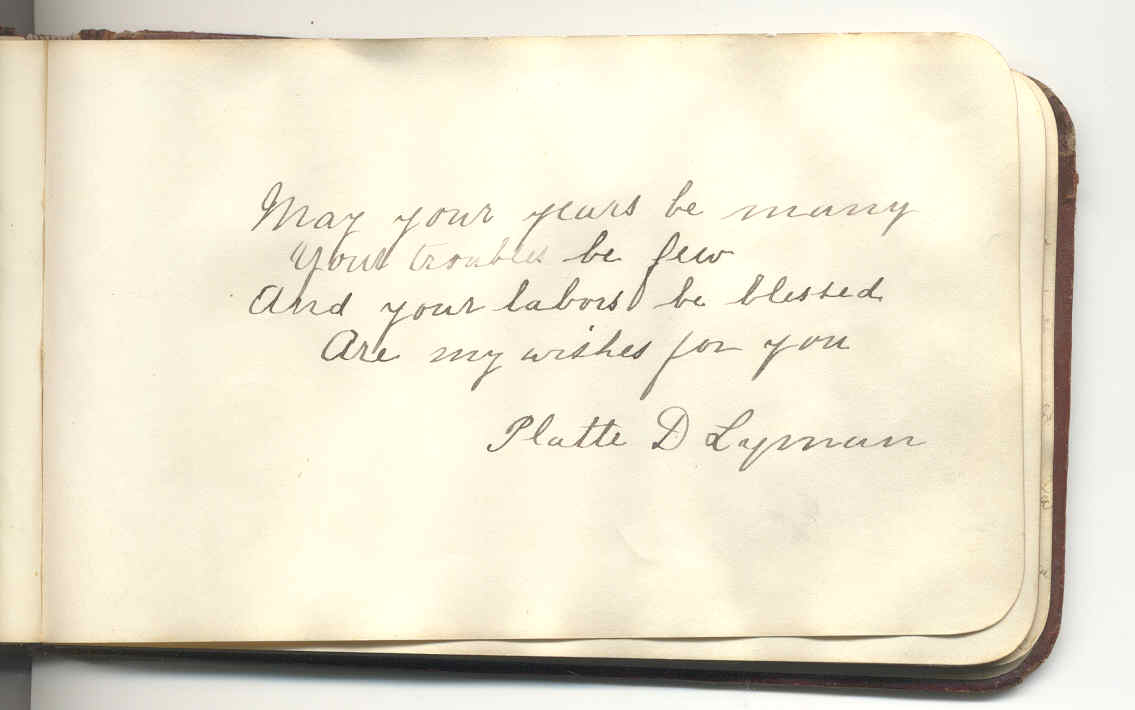 May your years be many
Your troubles be few
And your labors be blessed
Are my wishes for you
Platte D Lyman